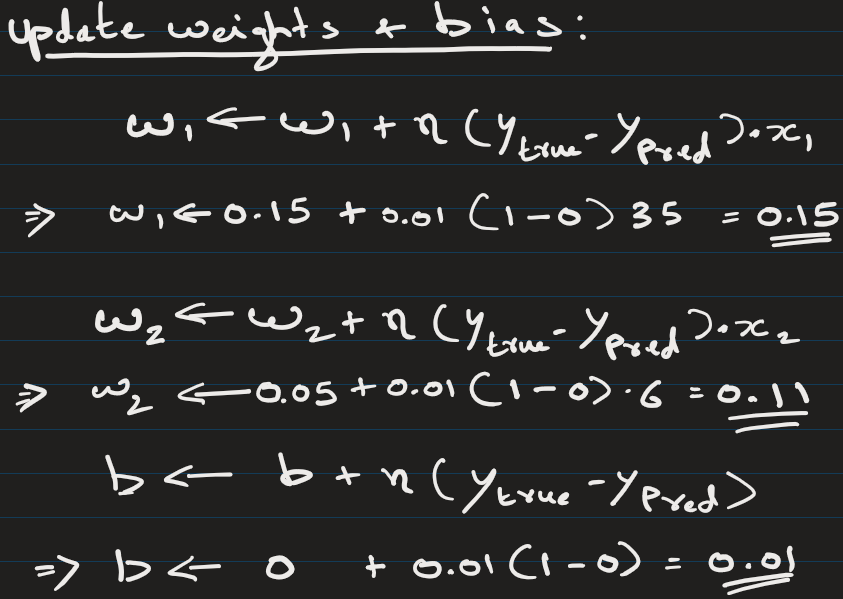 update weights & bias:
ω₁ ← ω₁ + η (y_true - y_pred).x₁
⇒ ω₁ ← 0.15 + 0.01 (1-0) 35 = 0.15
ω₂ ← ω₂ + η (y_true - y_pred).x₂
⇒ ω₂ ← 0.05 + 0.01 (1-0).6 = 0.11
b ← b + η (y_true - y_pred)
⇒ b ← 0 + 0.01 (1-0) = 0.01